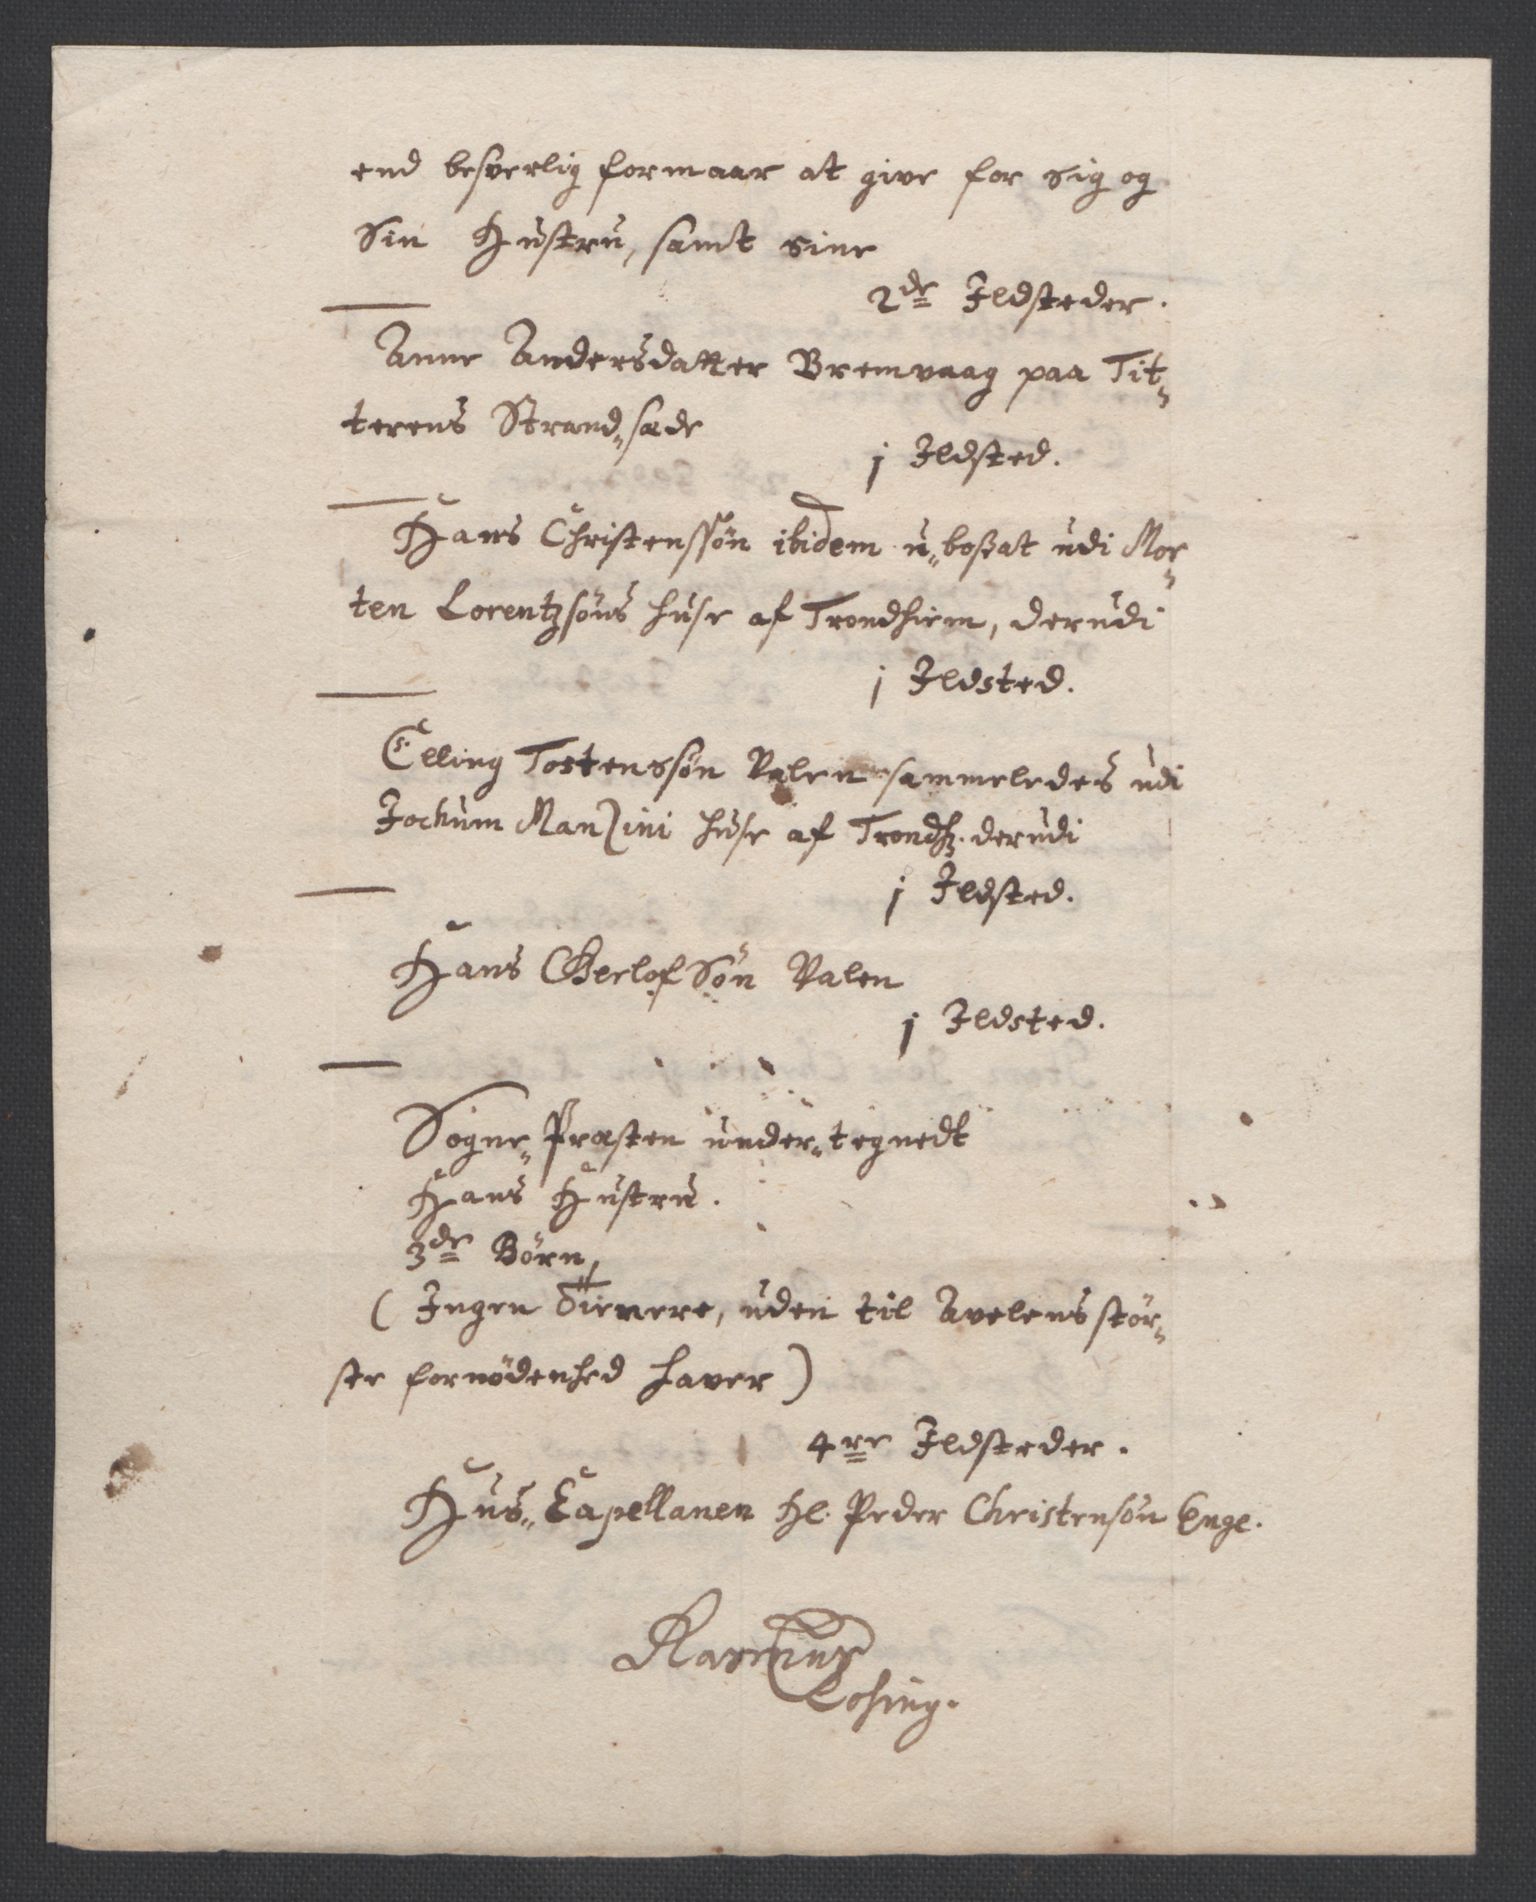 end besverlig formaar at give for sig og
sin Hustru, samt sine
2de Ildsteder.
Anne Andersdatter Bremvaag paa Tit„
terens Strand„sæde
j Ildsted.
Hans Christenssön ibidem u„bosat udi Mor„
ten Lorentzsöns huse af Trondhiem, derudi
j Ildsted.
Elling Tostenssön Valen sammeledes udi
Jochum Manzini huse af Trondh. derudi
j Ildsted.
Hans Gerlofsön Valen
j Ildsted.
Sogne„Præsten under„tegnedt
Hans Hustru.
3de Börn,
(Ingen Tienere, uden til Avelens stör„
ste fornödenhed haver)
4re Ildsteder.
Hus„Capellanen Hl. Peder Christensön Enge.
Rasmus
Losing.